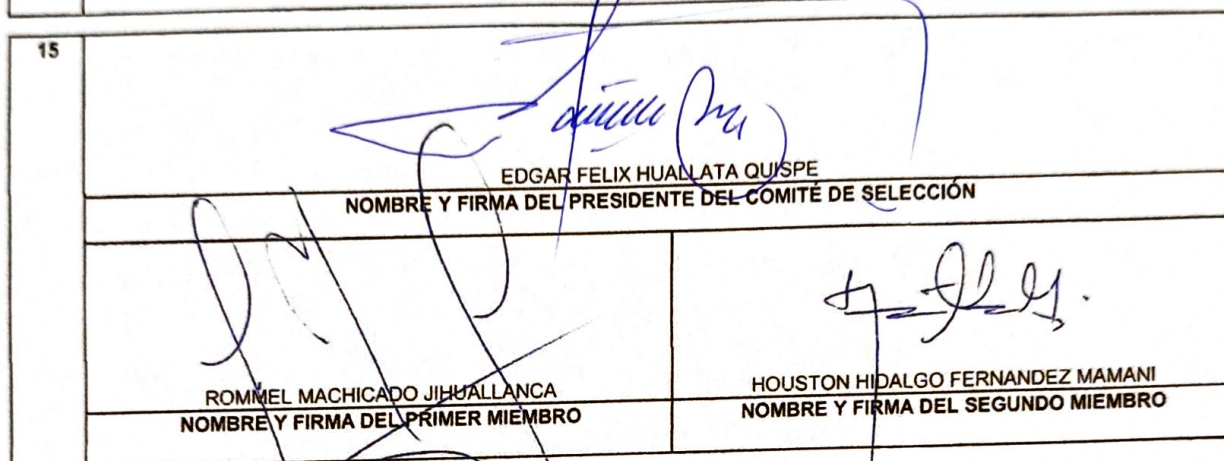 15
EDGAR FELIX HUALLATA QUISPE
NOMBRE Y FIRMA DEL PRESIDENTE DEL COMITÉ DE SELECCIÓN
ROMMEL MACHICADO JIHUALLANCA
NOMBRE Y FIRMA DEL PRIMER MIEMBRO
HOUSTON HIDALGO FERNANDEZ MAMANI
NOMBRE Y FIRMA DEL SEGUNDO MIEMBRO